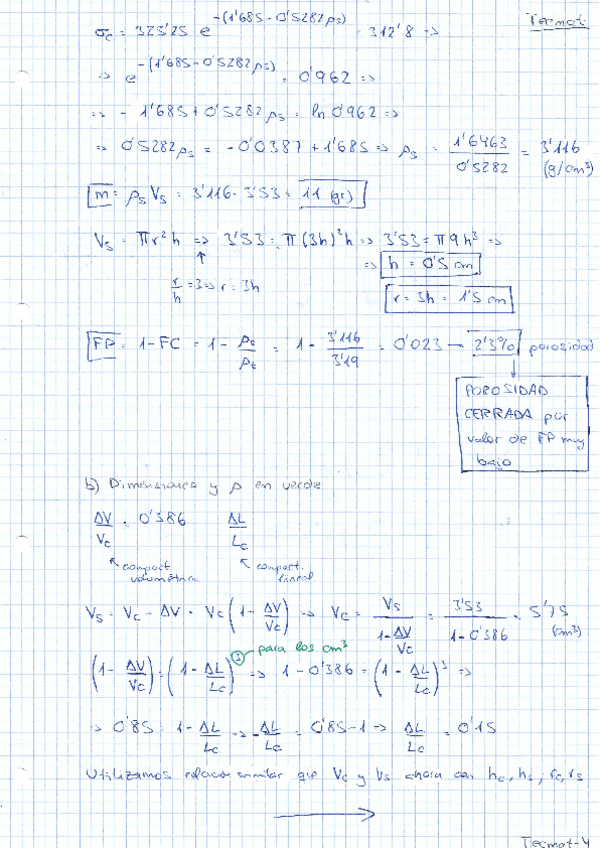 Tecmat.
σc = 325'25 e^-(1'685-0'5282ρs) = 312'8 =>
=> e^-(1'685-0'5282ρs) = 0'962 =>
=> -1'685 + 0'5282ρs = ln 0'962 =>
=> 0'5282ρs = -0'0387 + 1'685 => ρs = 1'6463/0'5282 = 3'116 (g/cm³)
m = ρs Vs = 3'116 · 3'53 = 11 (gr)
Vs = πr²h => 3'53 = π(3h)²h => 3'53 = π9h³ =>
=> h = 0'5 cm
r/h = 3 => r = 3h
r = 3h = 1'5 cm
FP = 1-FC = 1 - ρs/ρt = 1 - 3'116/3'19 = 0'023 → 2'3% porosidad
POROSIDAD
CERRADA por
valor de FP muy
bajo
b) Dimensiones y ρ en verde
ΔV/Vc = 0'386 ΔL/Lc
compact. volumétrica
compact. lineal
Vs = Vc - ΔV = Vc(1 - ΔV/Vc) => Vc = Vs/(1-ΔV/Vc) = 3'53/(1-0'386) = 5'75 (cm³)
para los cm³
(1 - ΔV/Vc) = (1 - ΔL/Lc)³ => 1-0'386 = (1 - ΔL/Lc)³ =>
=> 0'85 = 1 - ΔL/Lc => -ΔL/Lc = 0'85-1 => ΔL/Lc = 0'15
Utilizamos relación similar que Vc y Vs ahora con hc, hs; rc, rs
Tecmat-4